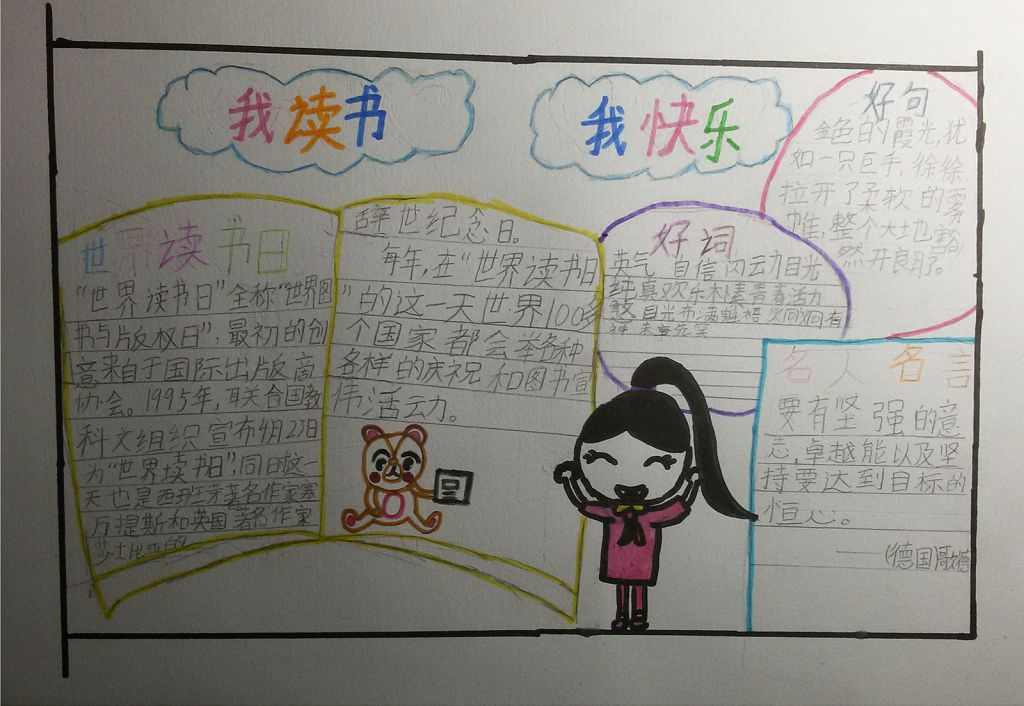 我读书
我快乐
世界读书日
“世界读书日”全称“世界图
书与版权日”，最初的创
意来自于国际出版商
协会。1995年，联合国教
科文组织宣布4月23日
为“世界读书日”，同日这一
天也是西班牙著名作家塞
万提斯和英国著名作家
莎士比亚的
辞世纪念日。
每年，在“世界读书日
”的这一天世界100多
个国家都会举各种
各样的庆祝和图书宣
传活动。
好词
英气 自信 闪动目光
纯真欢乐朴素青春活力
目光布满魁梧炯炯有
神
好句
金色的霞光，犹
如一只巨手，徐徐
拉开了柔软的雾
帷，整个大地豁
然开朗了。
名人名言
要有坚强的意
志，卓越能以及坚
持要达到目标的
恒心。
（德国歌德